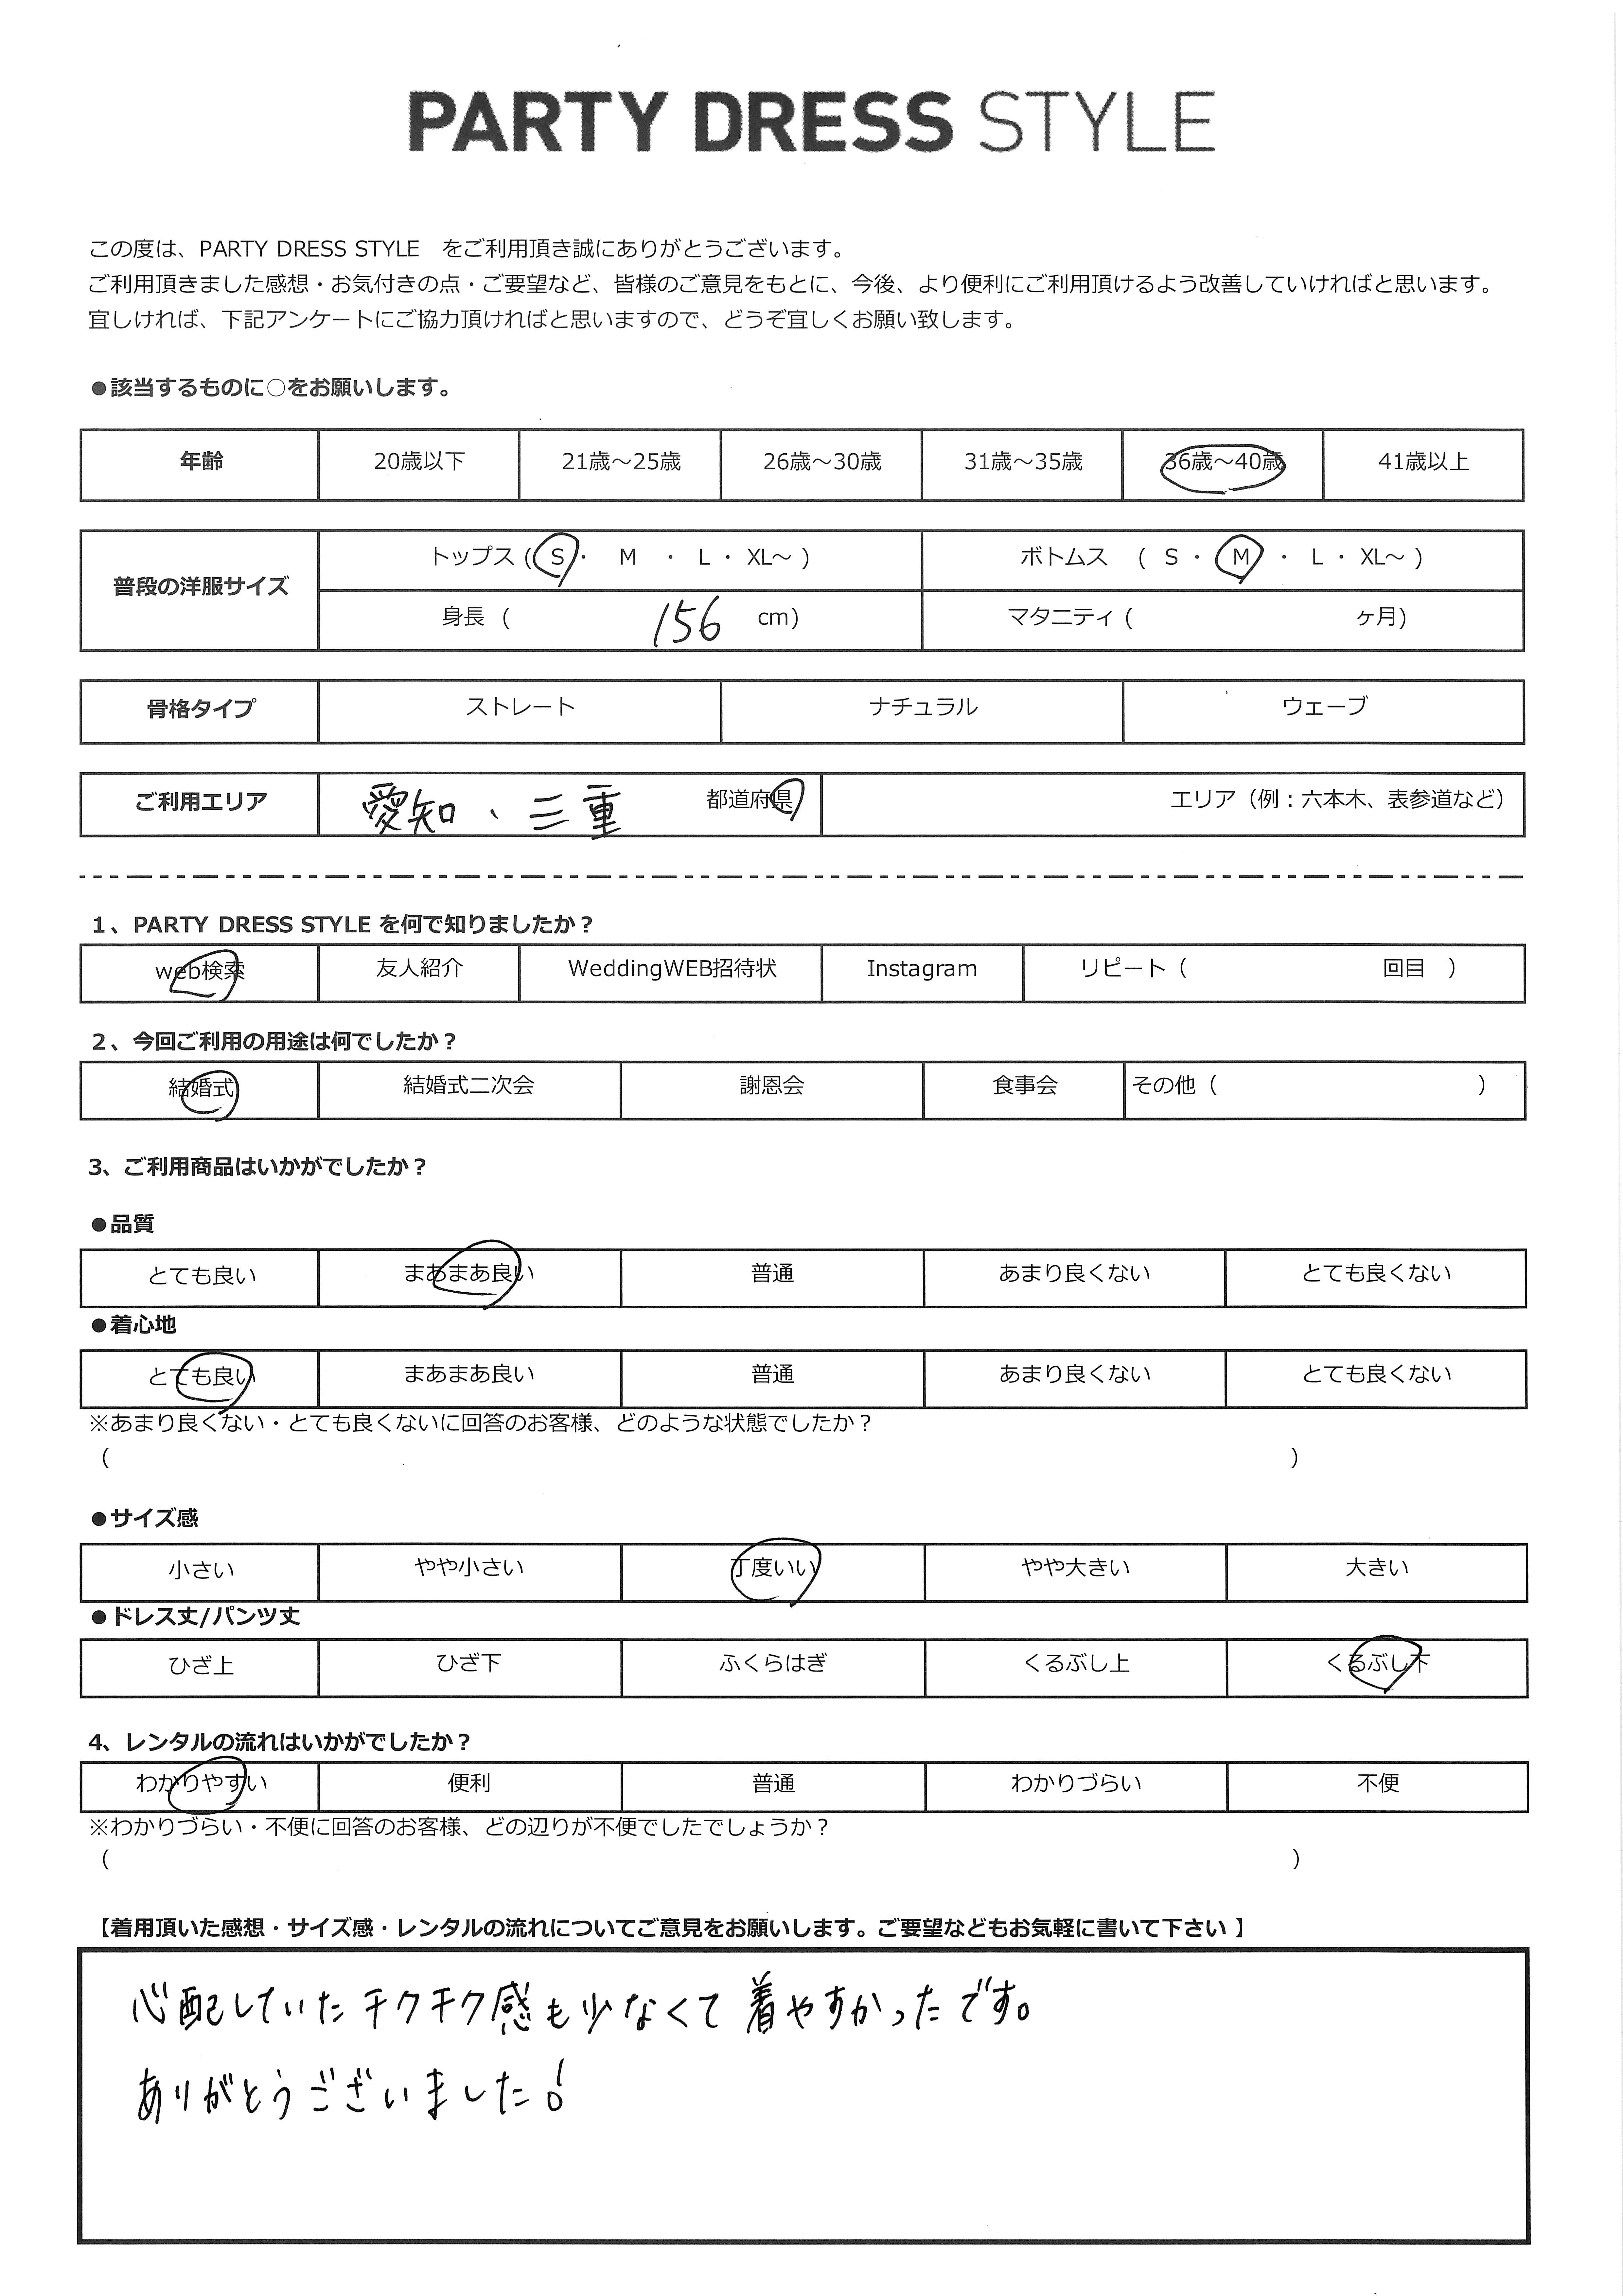 PARTY DRESS STYLE
この度は、PARTY DRESS STYLE　をご利用頂き誠にありがとうございます。
ご利用頂きました感想・お気付きの点・ご要望など、皆様のご意見をもとに、今後、より便利にご利用頂けるよう改善していければと思います。
宜しければ、下記アンケートにご協力頂ければと思いますので、どうぞ宜しくお願い致します。
●該当するものに○をお願いします。
年齢 20歳以下 21歳～25歳 26歳～30歳 31歳～35歳 36歳～40歳 41歳以上
普段の洋服サイズ
トップス ( S ・ M ・ L ・ XL～ ) ボトムス ( S ・ M ・ L ・ XL～ )
身長 ( 156 cm) マタニティ ( ヶ月)
骨格タイプ ストレート ナチュラル ウェーブ
ご利用エリア 愛知、三重 都道府県 エリア（例：六本木、表参道など）
1、PARTY DRESS STYLE を何で知りましたか？
web検索 友人紹介 WeddingWEB招待状 Instagram リピート（ 回目 ）
2、今回ご利用の用途は何でしたか？
結婚式 結婚式二次会 謝恩会 食事会 その他（ ）
3、ご利用商品はいかがでしたか？
●品質
とても良い まあまあ良い 普通 あまり良くない とても良くない
●着心地
とても良い まあまあ良い 普通 あまり良くない とても良くない
※あまり良くない・とても良くないに回答のお客様、どのような状態でしたか？
（ ）
●サイズ感
小さい やや小さい 丁度いい やや大きい 大きい
●ドレス丈/パンツ丈
ひざ上 ひざ下 ふくらはぎ くるぶし上 くるぶし下
4、レンタルの流れはいかがでしたか？
わかりやすい 便利 普通 わかりづらい 不便
※わかりづらい・不便に回答のお客様、どの辺りが不便でしたでしょうか？
（ ）
【着用頂いた感想・サイズ感・レンタルの流れについてご意見をお願いします。ご要望などもお気軽に書いて下さい 】
心配していたチクチク感も少なくて着やすかったです。
ありがとうございました！